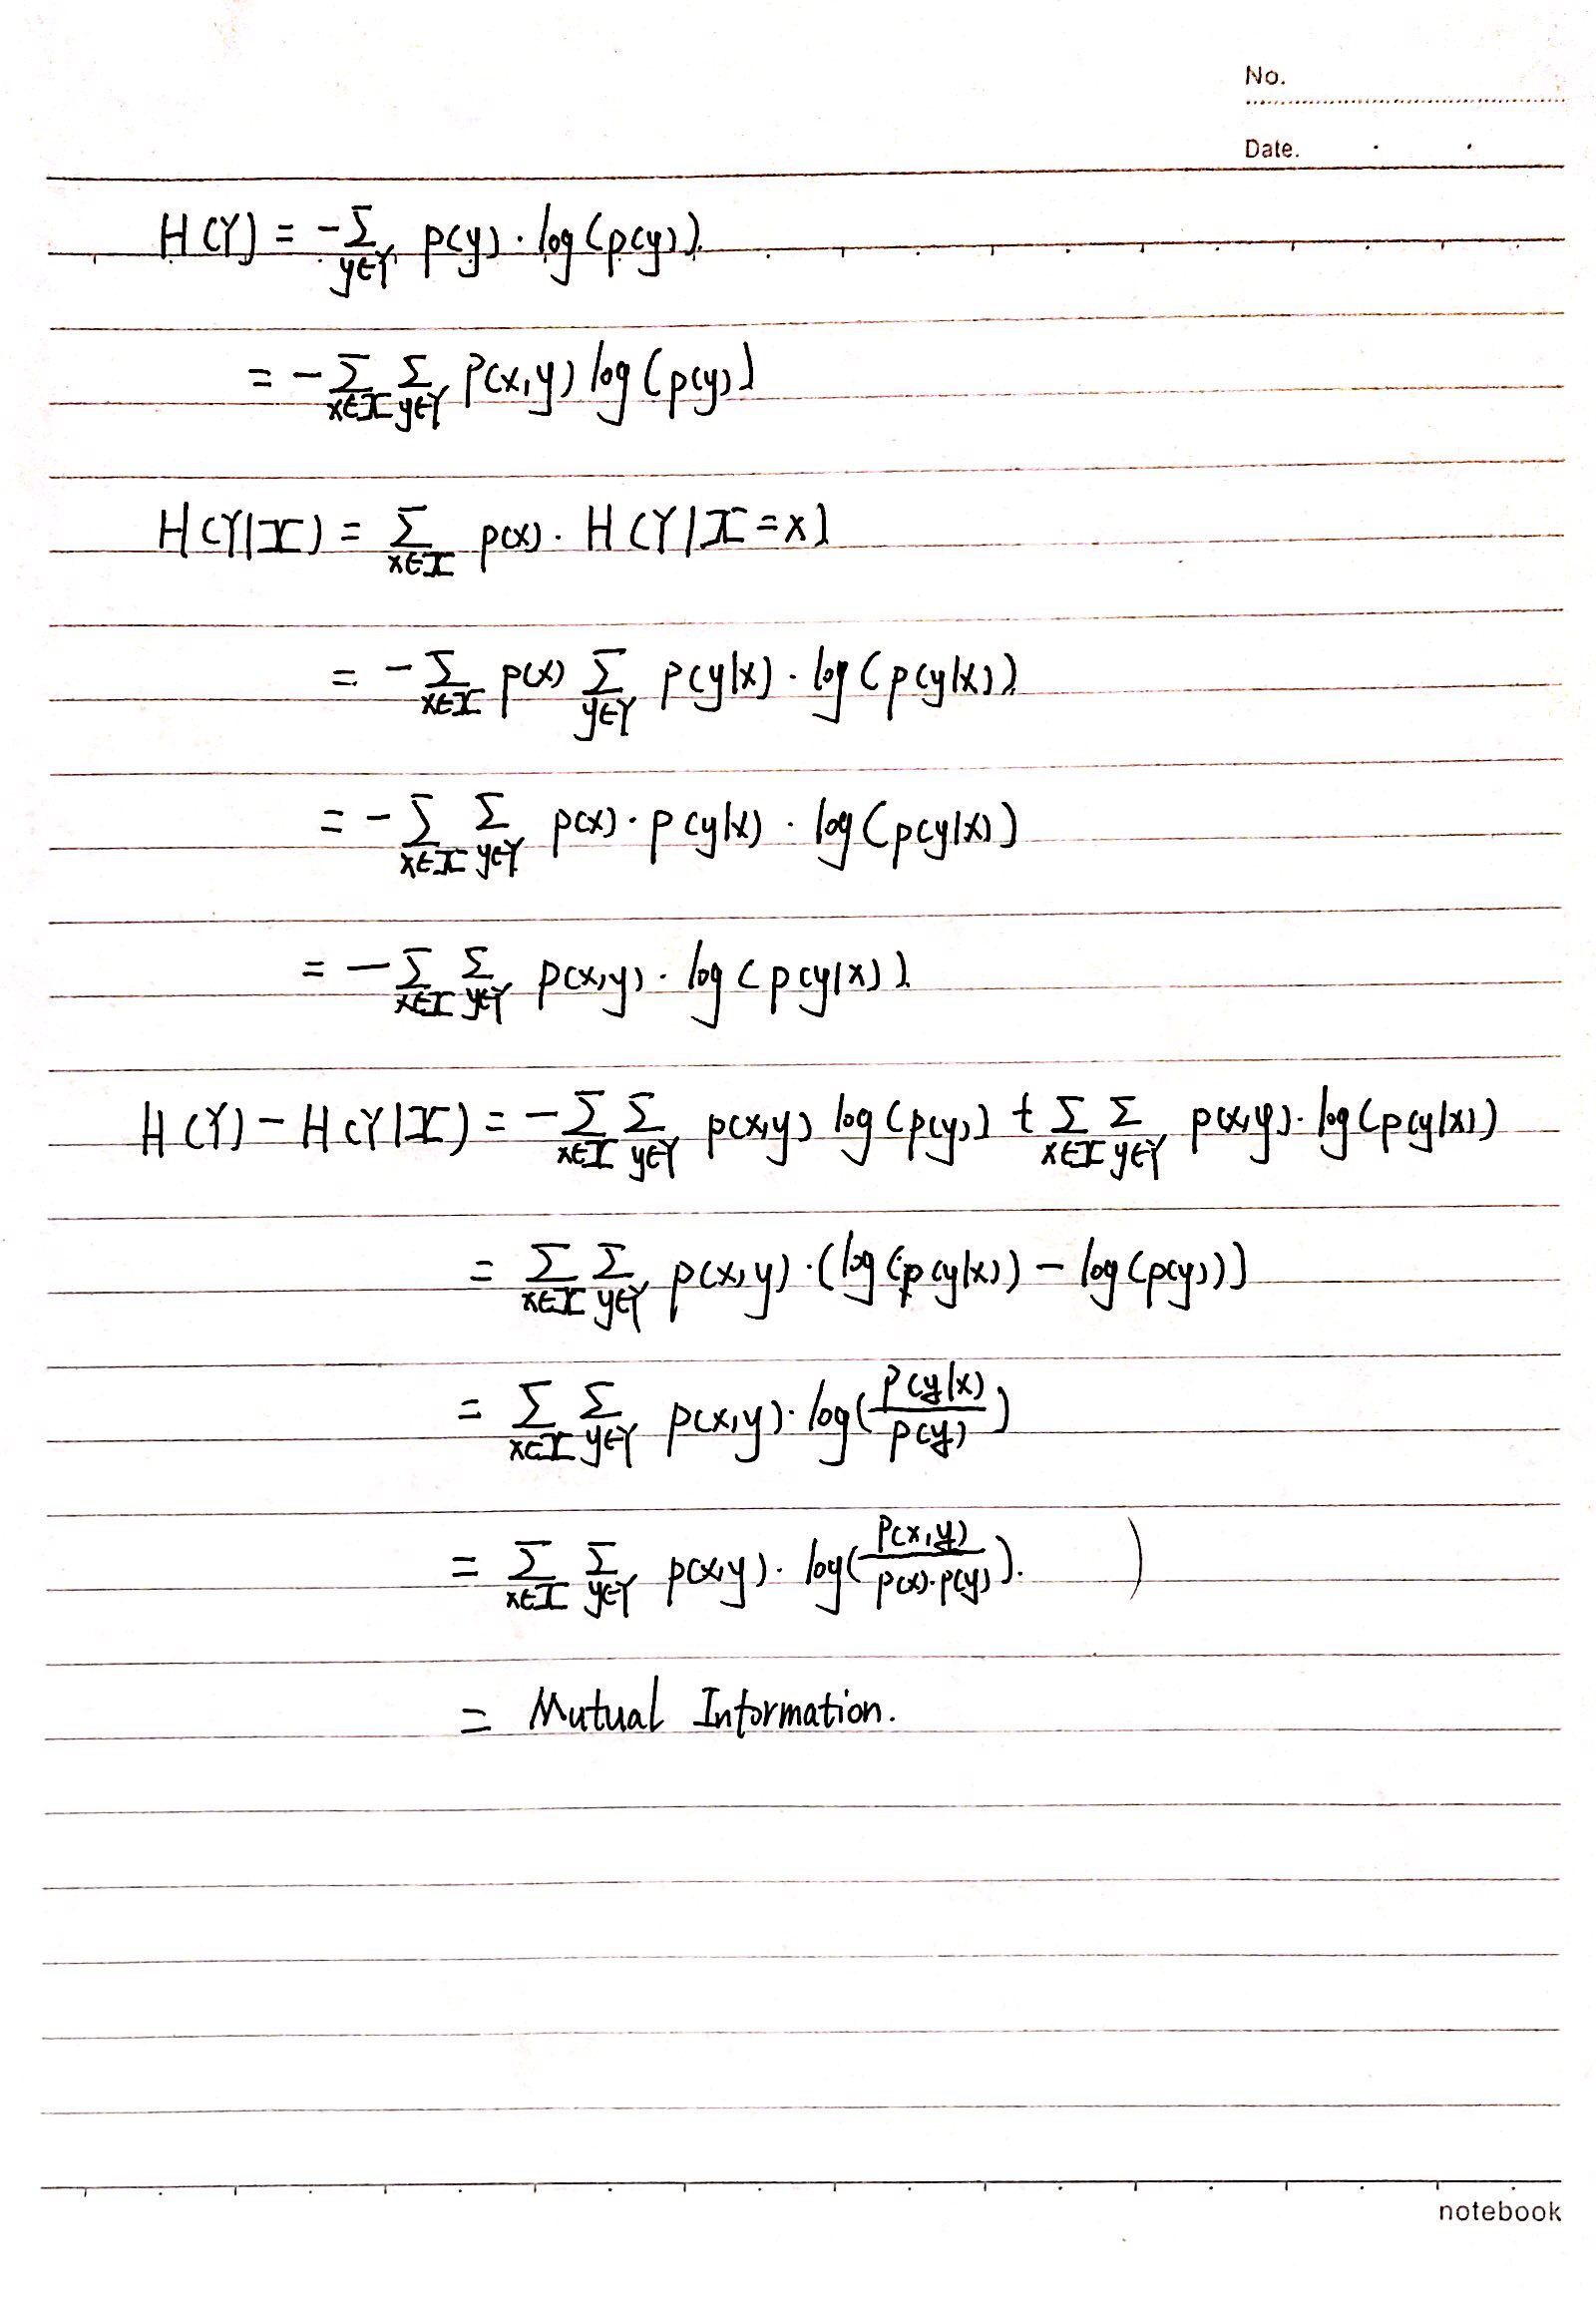 No.
Date.
H(Y) = -∑_{y∈Y} p(y) · log(p(y)).
= -∑_{x∈X} ∑_{y∈Y} P(x,y) log(p(y))
H(Y|X) = ∑_{x∈X} p(x) · H(Y|X=x)
= -∑_{x∈X} p(x) ∑_{y∈Y} p(y|x) · log(p(y|x)).
= -∑_{x∈X} ∑_{y∈Y} p(x) · p(y|x) · log(p(y|x))
= -∑_{x∈X} ∑_{y∈Y} p(x,y) · log(p(y|x)).
H(Y) - H(Y|X) = -∑_{x∈X} ∑_{y∈Y} p(x,y) log(p(y)) + ∑_{x∈X} ∑_{y∈Y} p(x,y) · log(p(y|x))
= ∑_{x∈X} ∑_{y∈Y} p(x,y) · (log(p(y|x)) - log(p(y)))
= ∑_{x∈X} ∑_{y∈Y} p(x,y) · log(\frac{P(y|x)}{p(y)})
= ∑_{x∈X} ∑_{y∈Y} p(x,y) · log(\frac{P(x,y)}{p(x)·p(y)}). )
= Mutual Information.
notebook